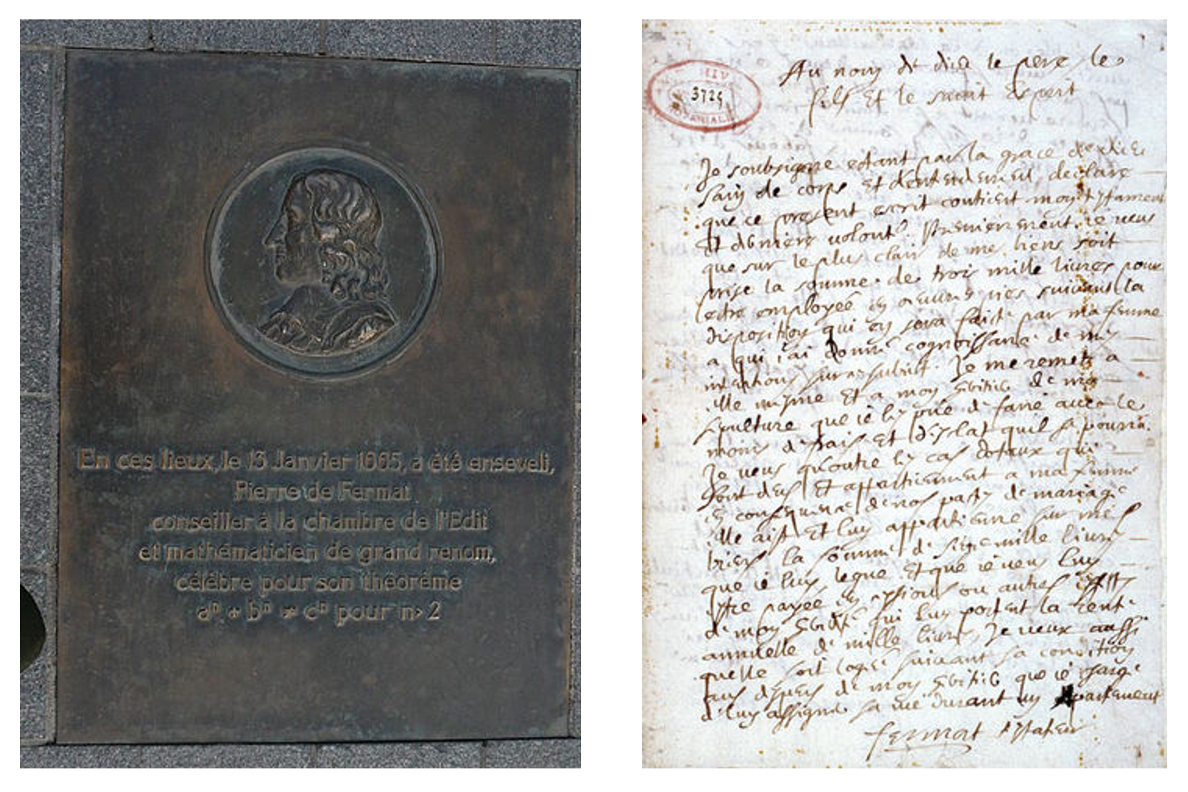 En ces lieux, le 13 Janvier 1665, a été enseveli,
Pierre de Fermat
conseiller à la chambre de l'Edit
et mathématicien de grand renom,
célèbre pour son théorème
aⁿ + bⁿ ≠ cⁿ pour n>2
3725
Au nom de dieu le pere le
fils Et le saint Esprit
Je soubsigne estant par la grace de dieu
sain de corps Et dentendement declare
que ce present escrit contient mon testament
Et derniere volonté Premierement je veus
que sur le plus clair de mes biens soit
prise la somme de trois mille livres pour
estre employée en œuvres pies suivant la
disposition qui en sera faicte par ma femme
a qui j'ai donné cognoissance de mes
intentions sur ce subiet. Je me remets a
elle mesme et a mon heritier de ma
sepulture que je les prie de faire avec le
moins de frais Et d'esclat quil se pourra.
Je veus qu'outre les cas dotaux qui
sont deus Et appartienent a ma femme
en consequence de nos pactes de mariage
elle aist Et luy appartienne sur mes
biens la somme de mille livres
que je luy legue Et que je veus luy
estre payée en ou autres
de mon heredité qui luy portent la rente
annuelle de mille livres, Je veux aussi
quelle soit logée suivant sa condition
aus despens de mon heritier que je charge
d'luy assigner sa vie durant un apartement
fermat testateur